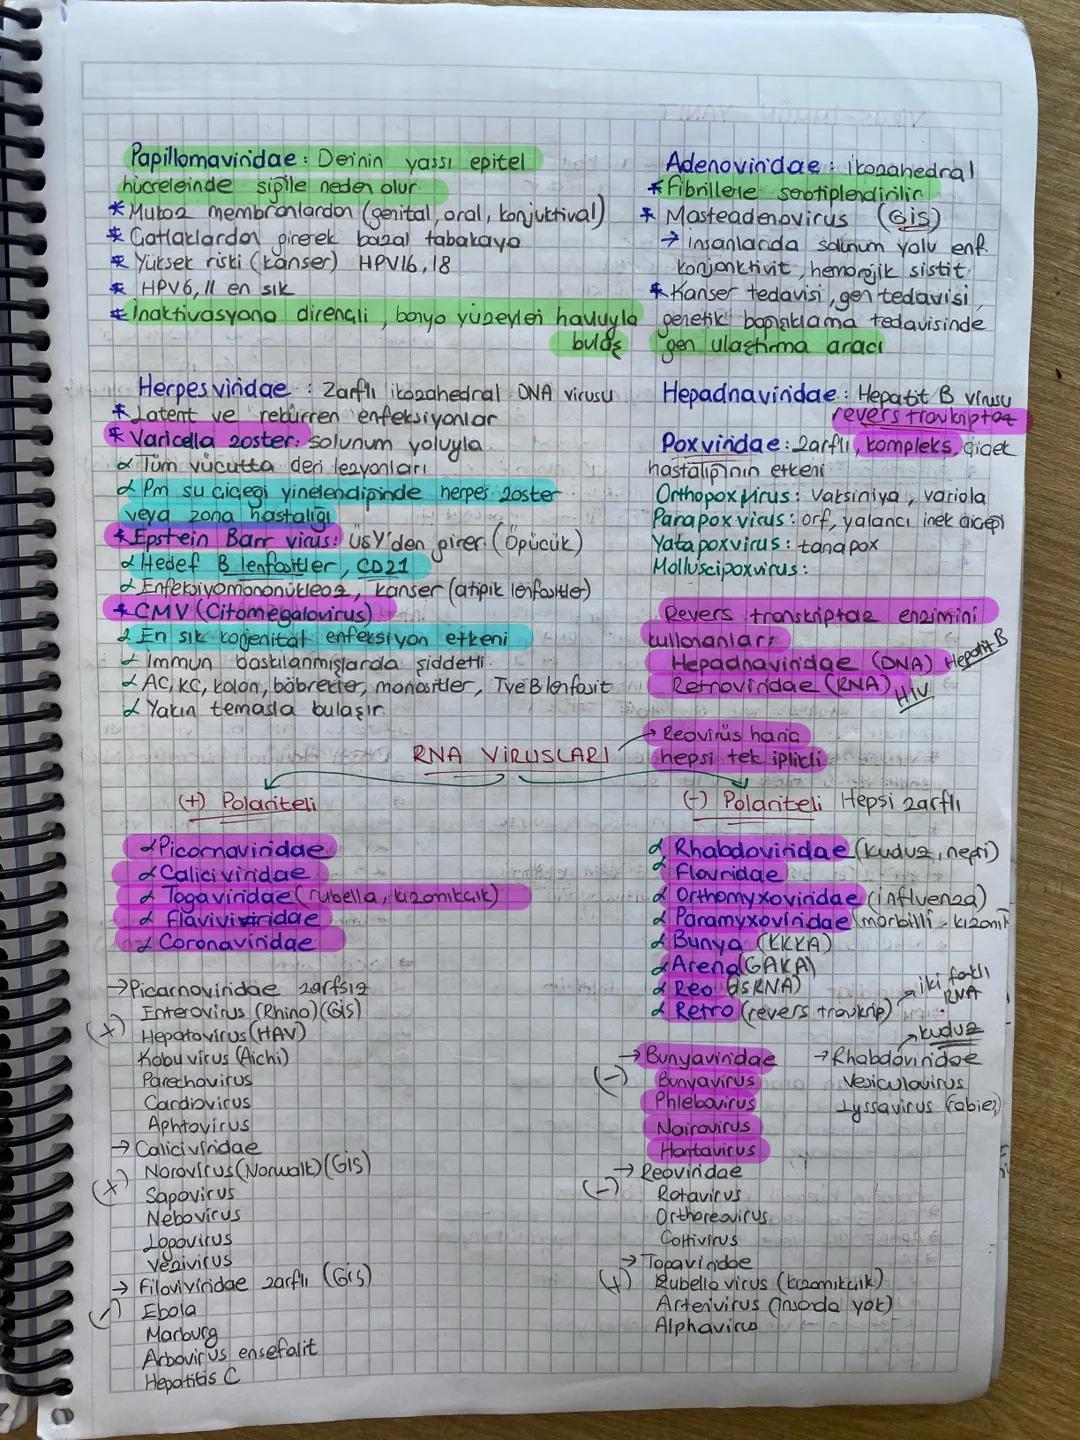 Papillomaviridae: Derinin yassı epitel
hücreleinde siğile neden olur
* Mukoz membranlardan (genital, oral, konjuktival)
* Çatlaklardan girerek bazal tabakaya
* Yüksek riski (kanser) HPV16, 18
* HPV6, 11 en sık
* İnaktivasyona dirençli, banyo yüzeyleri havuyla
bulaş
Herpesviridae : Zarflı ikozahedral DNA virusu
* Latent ve rekürren enfeksiyonlar
* Varicella zoster: solunum yoluyla
α Tüm vücutta deri lezyonları
α Pm su çiçeği yinelendiğinde herpes zoster
veya zona hastalığı
* Epstein Barr virüs: ÜSY'den girer. (Öpücük)
α Hedef B lenfositler, CD21
α Enfeksiyomononükleoz, kanser (atipik lenfositler)
* CMV (Citomegalovirus)
α En sık konjenital enfeksiyon etkeni
α İmmun baskılanmışlarda şiddetli
α AC, KC, kolon, böbrekler, monositler, T ve B lenfosit
α Yakın temasla bulaşır.
Adenoviridae : ikozahedral
* Fibrillerle serotiplendirilir
* Masteadenovirus (GİS)
→ İnsanlarda solunum yolu enf.
konjonktivit, hemorojik sistit
* Kanser tedavisi, gen tedavisi,
genetik bağışıklama tedavisinde
gen ulaştırma aracı
Hepadnaviridae: Hepatit B virusu
revers transkriptaz
Poxviridae: zarflı, kompleks, çiçek
hastalığının etkeni
Orthopoxvirus: vaksiniya, variola
Parapoxvirus: orf, yalancı inek çiçeği
Yatapoxvirus: tanapox
Molluscipoxvirus:
Revers transkriptaz enzimini
kullananlar;
Hepadnaviridae (DNA) Hepatit B
Retroviridae (RNA) HIV
RNA VİRUSLARI → Reovirüs hariç
hepsi tek iplikli
(+) Polariteli
α Picornaviridae
α Caliciviridae
α Togaviridae (rubella, kızamıkçık)
α Flaviviridae
α Coronaviridae
→ Picarnoviridae zarfsız
(+) Enterovirus (Rhino) (GİS)
Hepatovirus (HAV)
Kobuvirus (Aichi)
Parechovirus
Cardiovirus
Aphtovirus
→ Caliciviridae
(+) Norovirus (Norwalk) (GİS)
Sapovirus
Nebovirus
Lagovirus
Vesivirus
→ Filoviviridae zarflı (GİS)
(-) Ebola
Marburg
Arbovirus ensefalit
Hepatitis C
(-) Polariteli Hepsi zarflı
α Rhabdoviridae (kuduz, nepri)
α Flouridae
α Orthomyxoviridae (influenza)
α Paramyxoviridae (morbilli, kızamık
α Bunya (KKKA)
α Arena (GAKA)
α Reo (dsRNA)
α Retro (revers transkrip) → iki farklı
RNA
→ Bunyaviridae
(-) Bunyavirus
Phlebovirus
Nairovirus
Hantavirus
→ Rhabdoviridae → kuduz
Vesiculovirus
Lyssavirus (rabies)
→ Reoviridae
(-) Rotavirus
Orthoreovirus
Coltivirus
→ Togaviridae
(+) Rubella virus (kızamıkçık)
Arterivirus (insanda yok)
Alphavirus